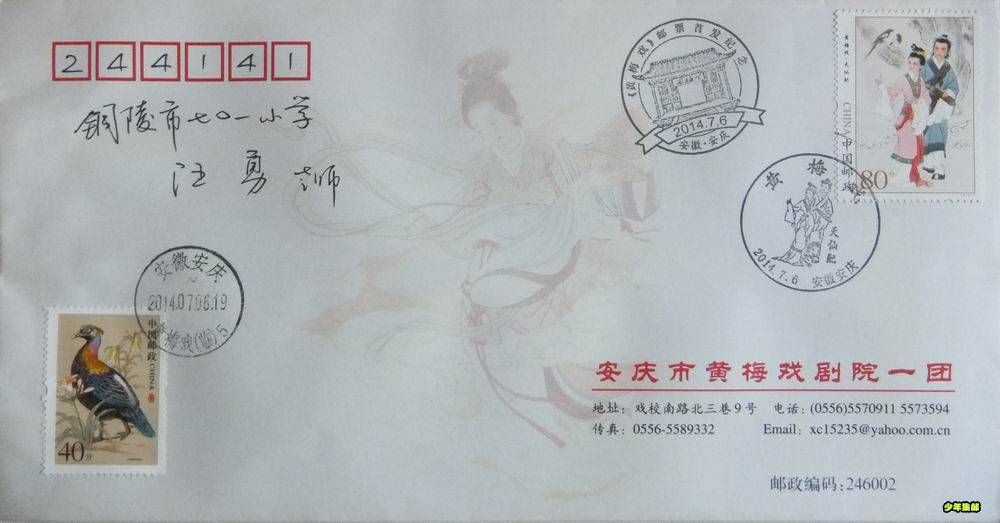 244141
铜陵市七〇一小学
汪勇老师
《黄梅戏》邮票首发纪念
2014.7.6
安徽·安庆
黄梅戏·天仙配
CHINA 中国邮政
80分
黄梅
天仙配
2014.7.6 安徽安庆
安徽安庆
2014.07.06.19
黄梅戏(临)5
中国邮政 CHINA
40分
安庆市黄梅戏剧院一团
地址：戏校南路北三巷9号 电话：(0556)5570911 5573594
传真：0556-5589332 Email：xc15235@yahoo.com.cn
邮政编码：246002
少年集邮